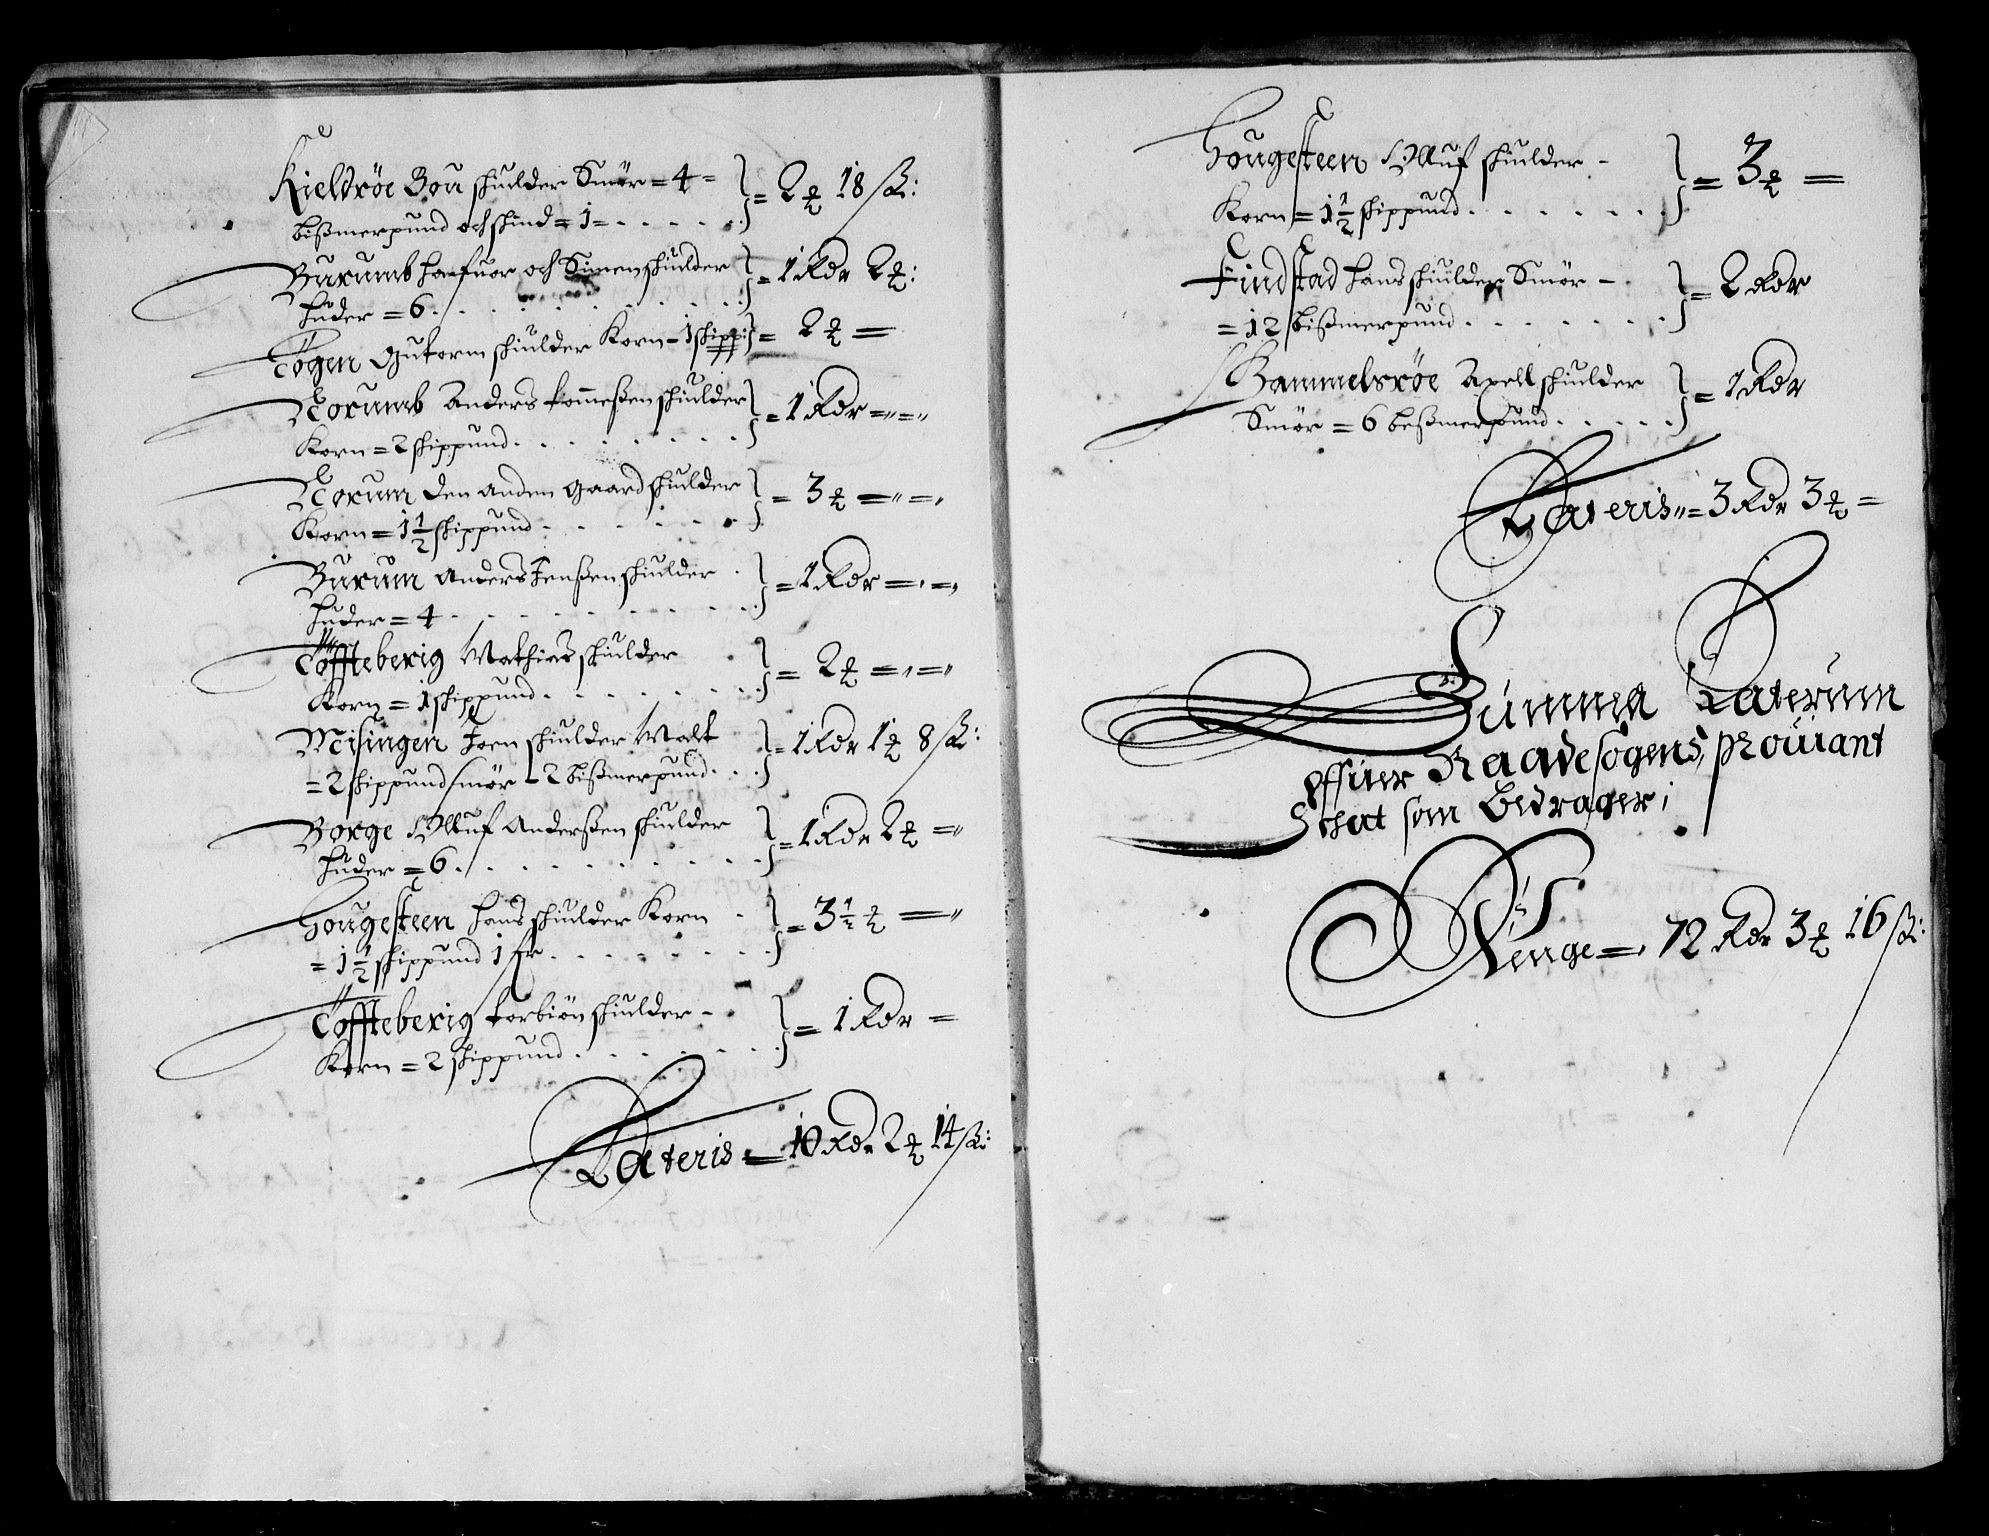 Kieldröe Bou schulder Smör = 4 = } = 2 ℔ 18 ß:
bißmerpund och skind = 1 = . . . . .
Burumb Halfuor och Simen schulder } = 1 Rdr 2 ℔:
Huder = 6 . . . . . . . .
Togen Gutorm schulder Korn – 1 schipp: } = 2 ℔ =
Norumb Anders tommeßen schulder } = 1 Rdr = „ = „
Korn = 2 schippund . . . . . . . .
Norum den anden gaard schulder } = 3 ℔ = „ = „
Korn = 1 1/2 schippund . . . . . . .
Burum Anders Jenßen schulder . } = 1 Rdr = „ = „
Huder = 4 . . . . . . . . .
Töffteberig Mathias schulder } = 2 ℔ = „ = „
Korn = 1 schippund . . . . . . .
Misingen Joen schulder Malt } = 1 Rdr 1 ℔ 8 ß:
= 2 schippund smör – 2 bißmerpund . . .
Borge Olluf Anderßen schulder } = 1 Rdr 2 ℔ = „
Huder = 6 . . . . . . . . .
Hougesteen Hans schulder Korn - } = 3 1/2 ℔ = „
= 1 1/2 schippund 1 fr . . . . . . .
Töffteberig torbiön schulder - } = 1 Rdr =
Korn = 2 schippund . . . . . . .
Lateris = 10 Rdr 2 ℔ 14 ß:
Hougesteen Olluf schulder - } = 3 ℔ =
Korn = 1 1/2 schippund . . . . . .
Findstad Hans schulder Smör - . } = 2 Rdr
= 12 bißmerpund . . . . . . .
Gammelsröe Axell schulder } = 1 Rdr
Smör = 6 beßmerpund . . . . .
Lateris „ = 3 Rdr 3 ℔ =
Summa Laterum
offuer Raadesogens prouiant
schat som Bedrager;
Penge = 72 Rdr 3 ℔ 16 ß: